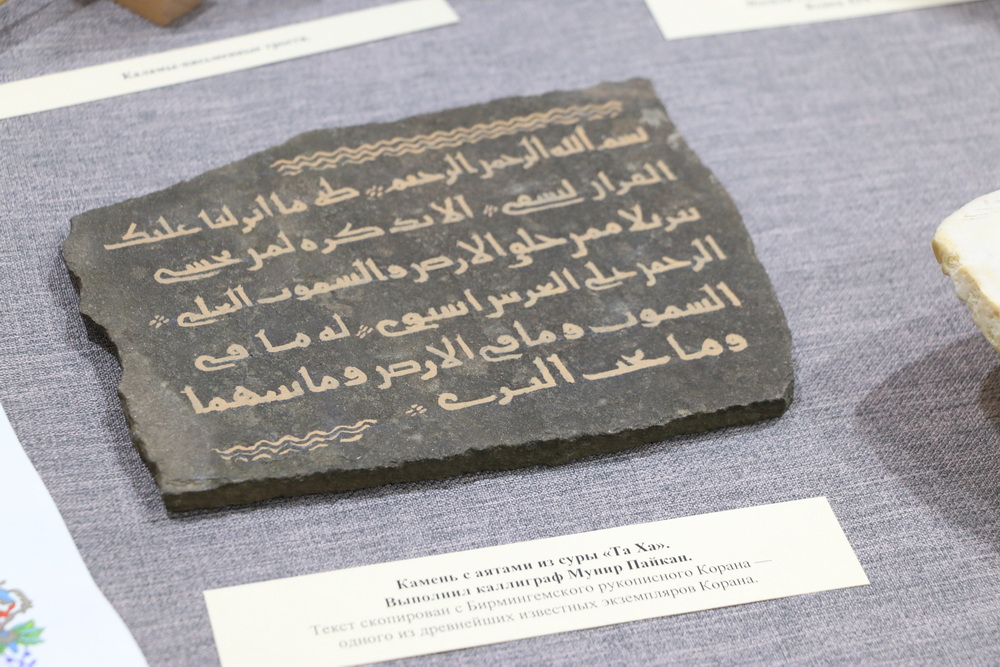 Каламы-письменные трости.
بسم الله الرحمن الرحيم ⁘ طه ما انزلنا عليك
القران لتشقى ⁘ الا تذكره لمن يخشى
تنزيلا ممن خلق الارض والسموت العلى ⁘
الرحمن على العرش استوى ⁘ له ما في
السموت وما في الارض وما بينهما
وما تحت الثرى ⁘
Камень с аятами из суры «Та Ха».
Выполнил каллиграф Мунир Пайкан.
Текст скопирован с Бирмингемского рукописного Корана —
одного из древнейших известных экземпляров Корана.